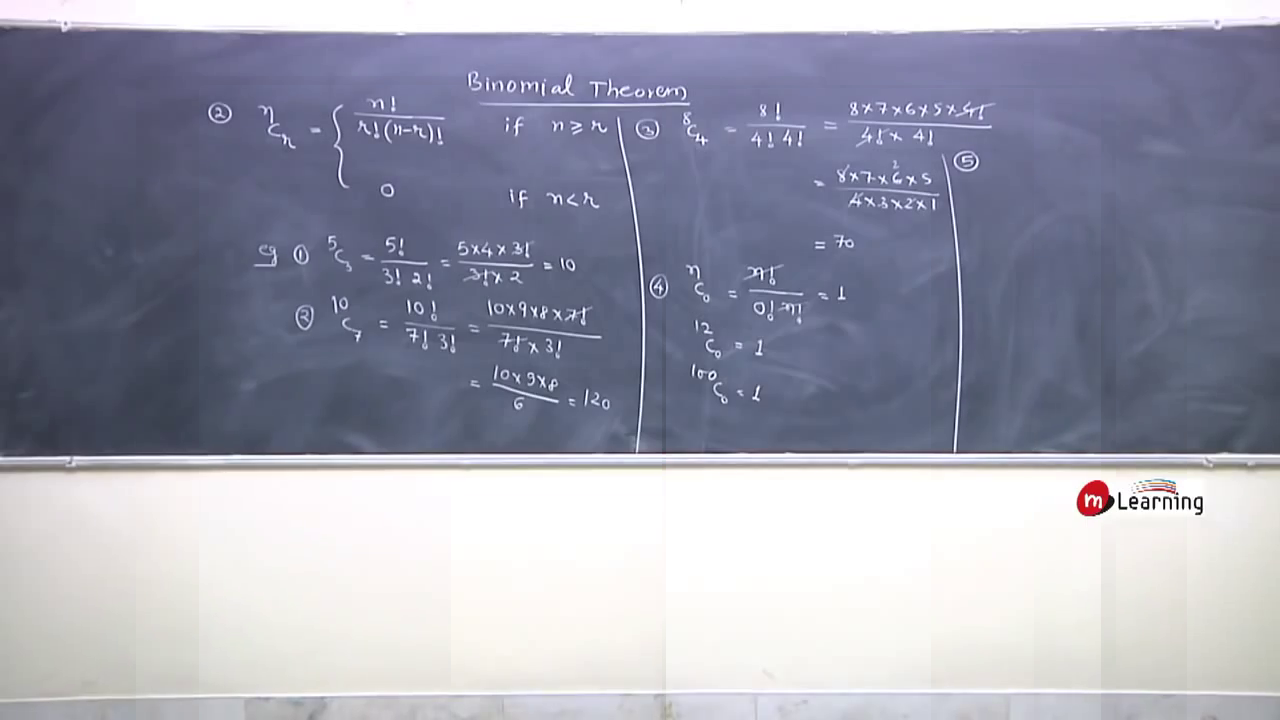 Binomial Theorem
② ⁿCᵣ = { n! / r!(n-r)! if n ≥ r
0 if n < r
eg ① ⁵C₃ = 5! / 3! 2! = 5×4×3! / 3!×2 = 10
② ¹⁰C₇ = 10! / 7! 3! = 10×9×8×7! / 7!×3!
= 10×9×8 / 6 = 120
③ ⁸C₄ = 8! / 4! 4! = 8×7×6×5×4! / 4!×4!
= 8×7×6×5 / 4×3×2×1
2
= 70
④ ⁿC₀ = n! / 0! n! = 1
¹²C₀ = 1
¹⁰⁰C₀ = 1
⑤
m Learning